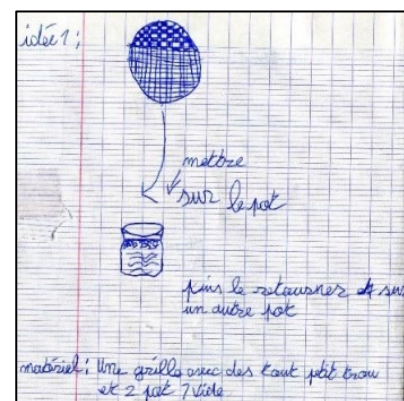 idée 1 :
mettre
sur le pot
puis le retourner et sur
un autre pot
matériel : Une grille avec des tout petit trou
et 2 pot ? vide